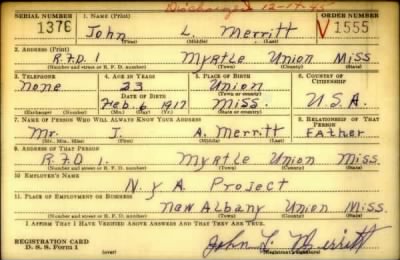 Discharged 12-17-45
SERIAL NUMBER 1. NAME (Print) ORDER NUMBER
1376 John L. Merritt V 1555
(First) (Middle) (Last)
2. ADDRESS (Print)
R.F.D. 1 Myrtle Union Miss
(Number and street or R. F. D. number) (Town) (County) (State)
3. TELEPHONE 4. AGE IN YEARS 5. PLACE OF BIRTH 6. COUNTRY OF CITIZENSHIP
None 23 Union
DATE OF BIRTH (Town or county)
Feb. 6 1917 Miss. U.S.A.
(Exchange) (Number) (Mo.) (Day) (Yr.) (State or country)
7. NAME OF PERSON WHO WILL ALWAYS KNOW YOUR ADDRESS 8. RELATIONSHIP OF THAT PERSON
Mr. J. A. Merritt Father
(Mr., Mrs., Miss) (First) (Middle) (Last)
9. ADDRESS OF THAT PERSON
R.F.D 1. Myrtle Union Miss.
(Number and street or R. F. D. number) (Town) (County) (State)
10. EMPLOYER'S NAME
N.Y.A. Project
11. PLACE OF EMPLOYMENT OR BUSINESS
New Albany Union Miss.
(Number and street or R. F. D. number) (Town) (County) (State)
I AFFIRM THAT I HAVE VERIFIED ABOVE ANSWERS AND THAT THEY ARE TRUE.
REGISTRATION CARD
D. S. S. Form 1 (over) John L. Merritt
(Registrant's signature)